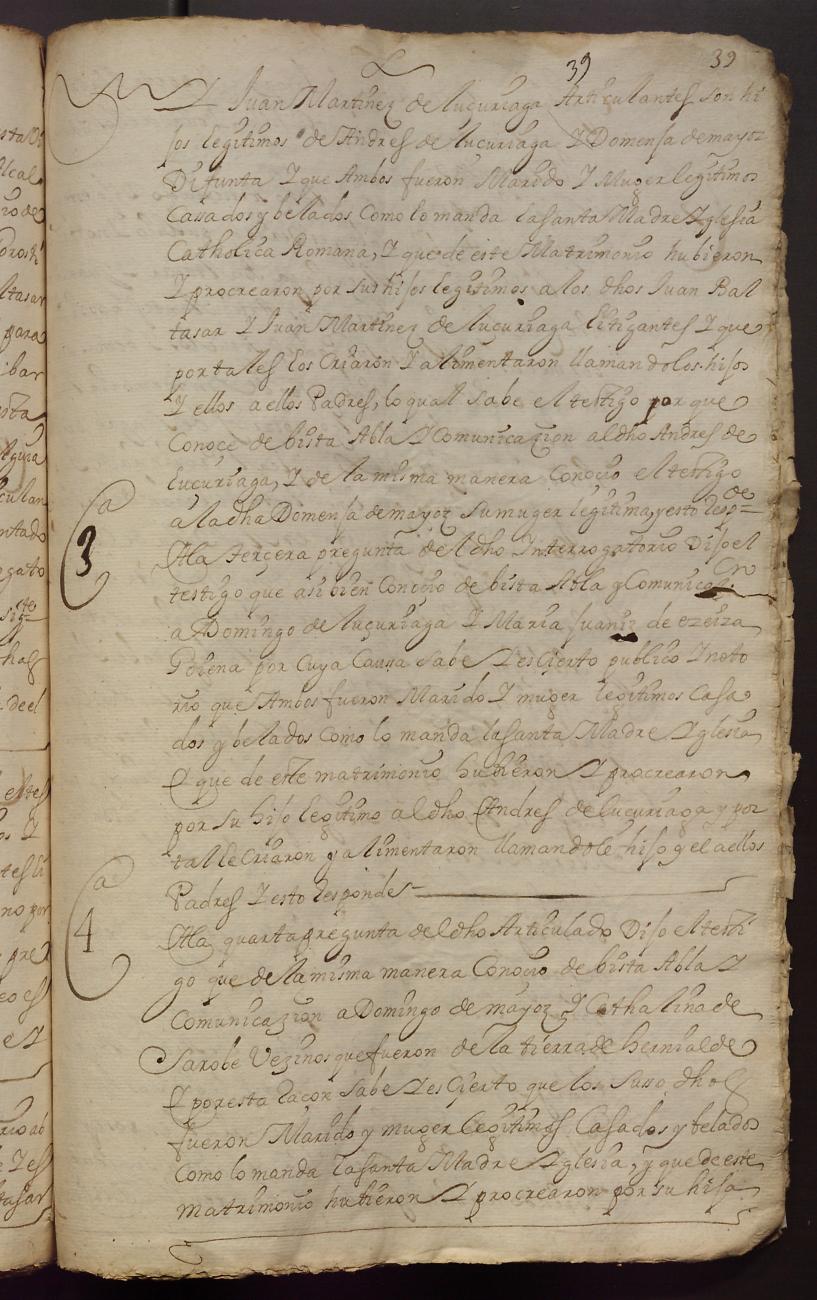 39 39
Y Juan Martinez de luçuriaga Articulantes son hi
jos legitimos de Andres de luçuriaga Y Domensa de mayoz
Difunta Y que Ambos fueron Marido Y Muger legitimos
Casados y belados Como lo manda la santa Madre Yglesia
Catholica Romana, Y que de este Matrimonio hubieron
Y procrearon por sus hijos legitimos a los dhos Juan Bal
tasar Y Juan Martinez de luçuriaga litigantes Y que
por tales los Criaron Y alimentaron llamandolos hijos
Y ellos a ellos Padres, lo qual sabe el testigo por que
Conoce de bista Abla Y Comunicazion al dho Andres de
luçuriaga, Y de la misma manera Conocio el testigo
a la dha Domensa de mayoz su muger legitima, y esto resp=de
3a
A la tercera pregunta del dho Interrogatorio Dijo el
testigo que asi bien Conocio de bista Abla y Comunicaçion
a Domingo de luçuriaga Y Maria Juaniz de ezeiza
Goiena por cuya Caussa sabe Y es Cierto publico Y noto
rio que Ambos fueron Marido Y muger legitimos Casa
dos y belados Como lo manda la santa Madre Yglesia
Y que de este matrimonio hubieron Y procrearon
por su hijo legitimo al dho Andres de luçuriaga y por
tal le Criaron y alimentaron llamandole hijo y el a ellos
Padres Y esto responde
4a
A la quarta pregunta del dho Articulado Dijo el testi
go que de la misma manera Conocio de bista Abla Y
Comunicazion a Domingo de mayoz Y Cathalina de
Sarobe Vezinos que fueron de la tierra de hernialde
Y por esta raçon sabe Y es Cierto que los Susso dhos
fueron Marido y muger legitimos Casados y belados
Como lo manda la santa Madre Yglesia, y que de este
matrimonio hubieron Y procrearon por su hija